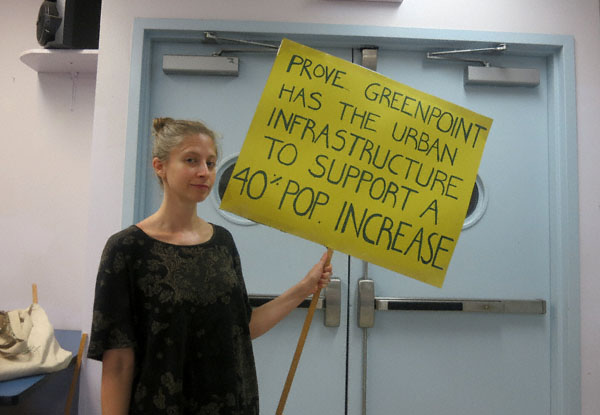 PROVE GREENPOINT
HAS THE URBAN
INFRASTRUCTURE
TO SUPPORT A
40% POP. INCREASE